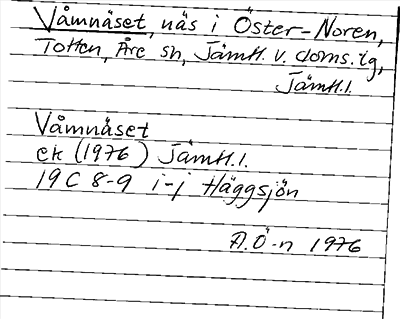 Våmnäset, näs i Öster-Noren,
Totten, Åre sn, Jämtl. v. doms.lg,
Jämtl.l.
Våmnäset
ek (1976) Jämtl.l.
19 C 8-9 i-j Häggsjön
A.Ö-n 1976